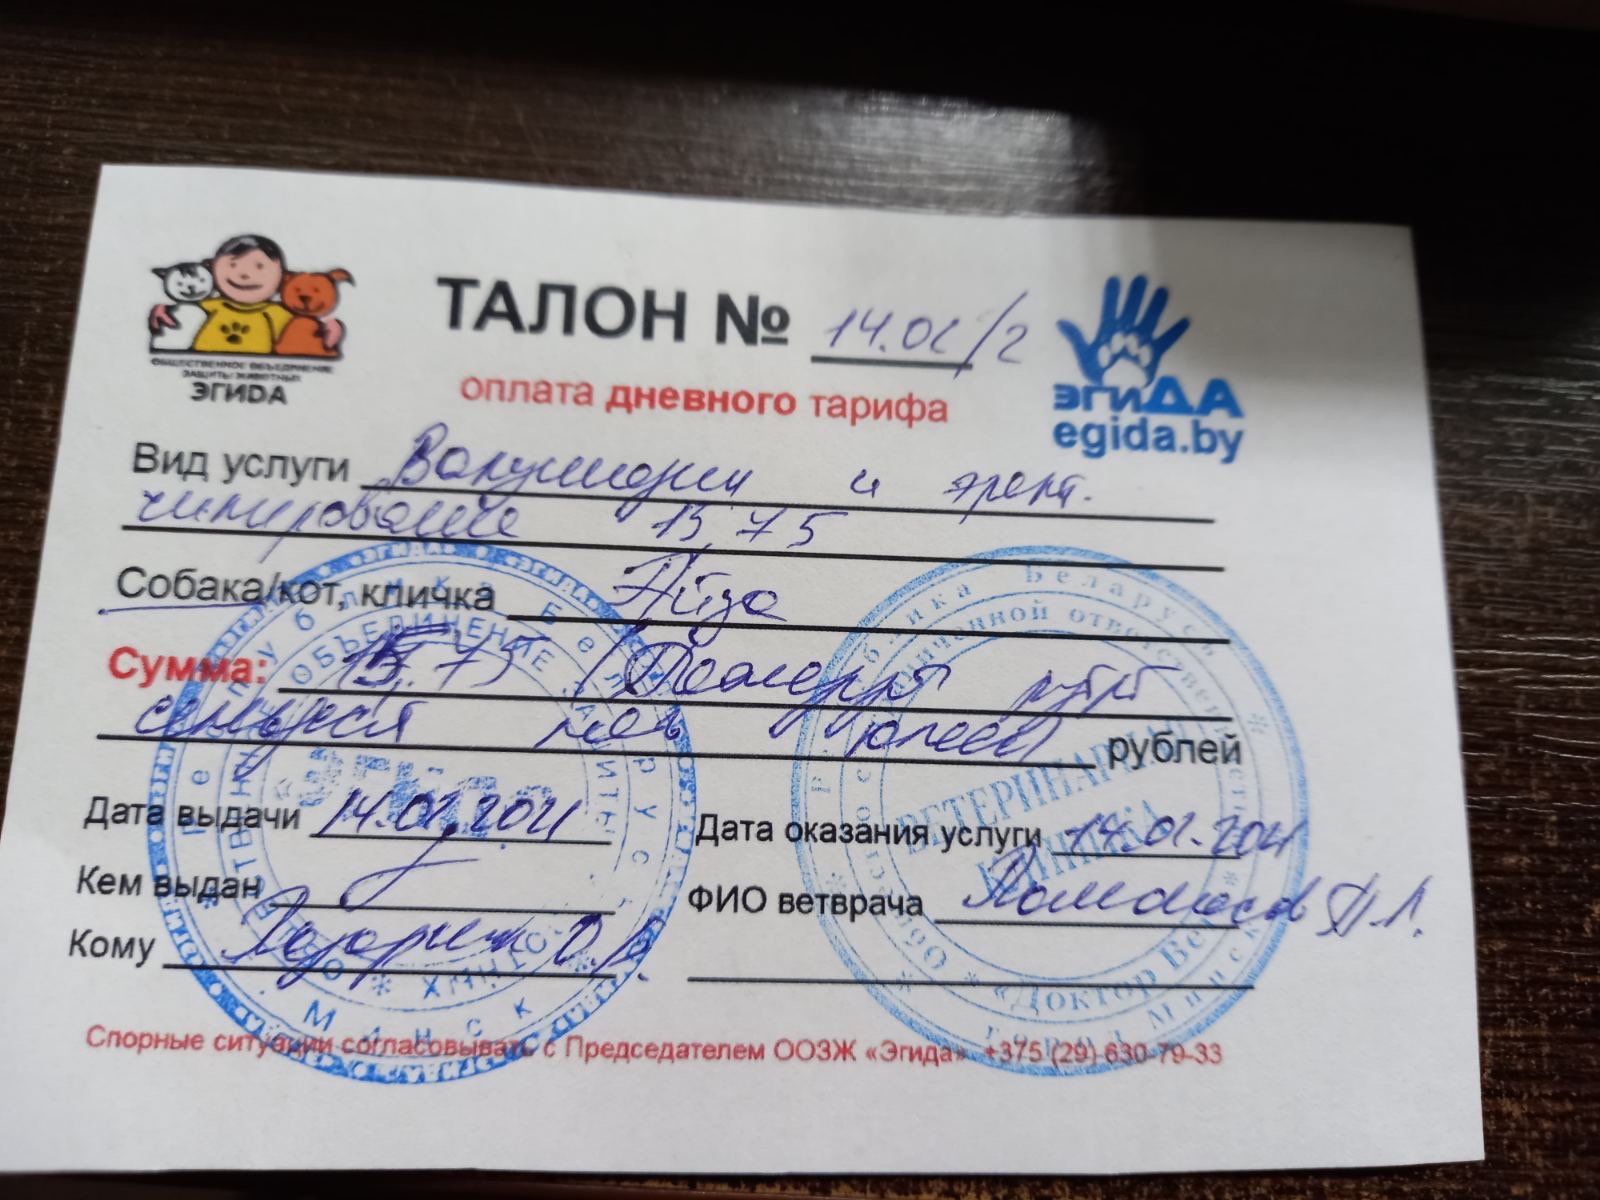 ОБЩЕСТВЕННОЕ ОБЪЕДИНЕНИЕ
ЗАЩИТЫ ЖИВОТНЫХ
ЭГИDА
ТАЛОН № 14.01/2
оплата дневного тарифа
эгиДА
egida.by
Вид услуги Вакцинация и элект.
чипирование 15,75
Собака/кот, кличка Айза
Сумма: 15,75
семьдесят пять копеек рублей
Дата выдачи 14.01.2021
Дата оказания услуги 14.01.2021
Кем выдан
ФИО ветврача
Кому
Спорные ситуации согласовывать с Председателем ООЗЖ «Эгида» +375 (29) 630-79-33
Республика Беларусь
ОБЪЕДИНЕНИЕ ЗАЩИТЫ
«Эгида»
Минск
Республика Беларусь
ВЕТЕРИНАРНАЯ
КЛИНИКА
«Доктор Вет»
город Минск